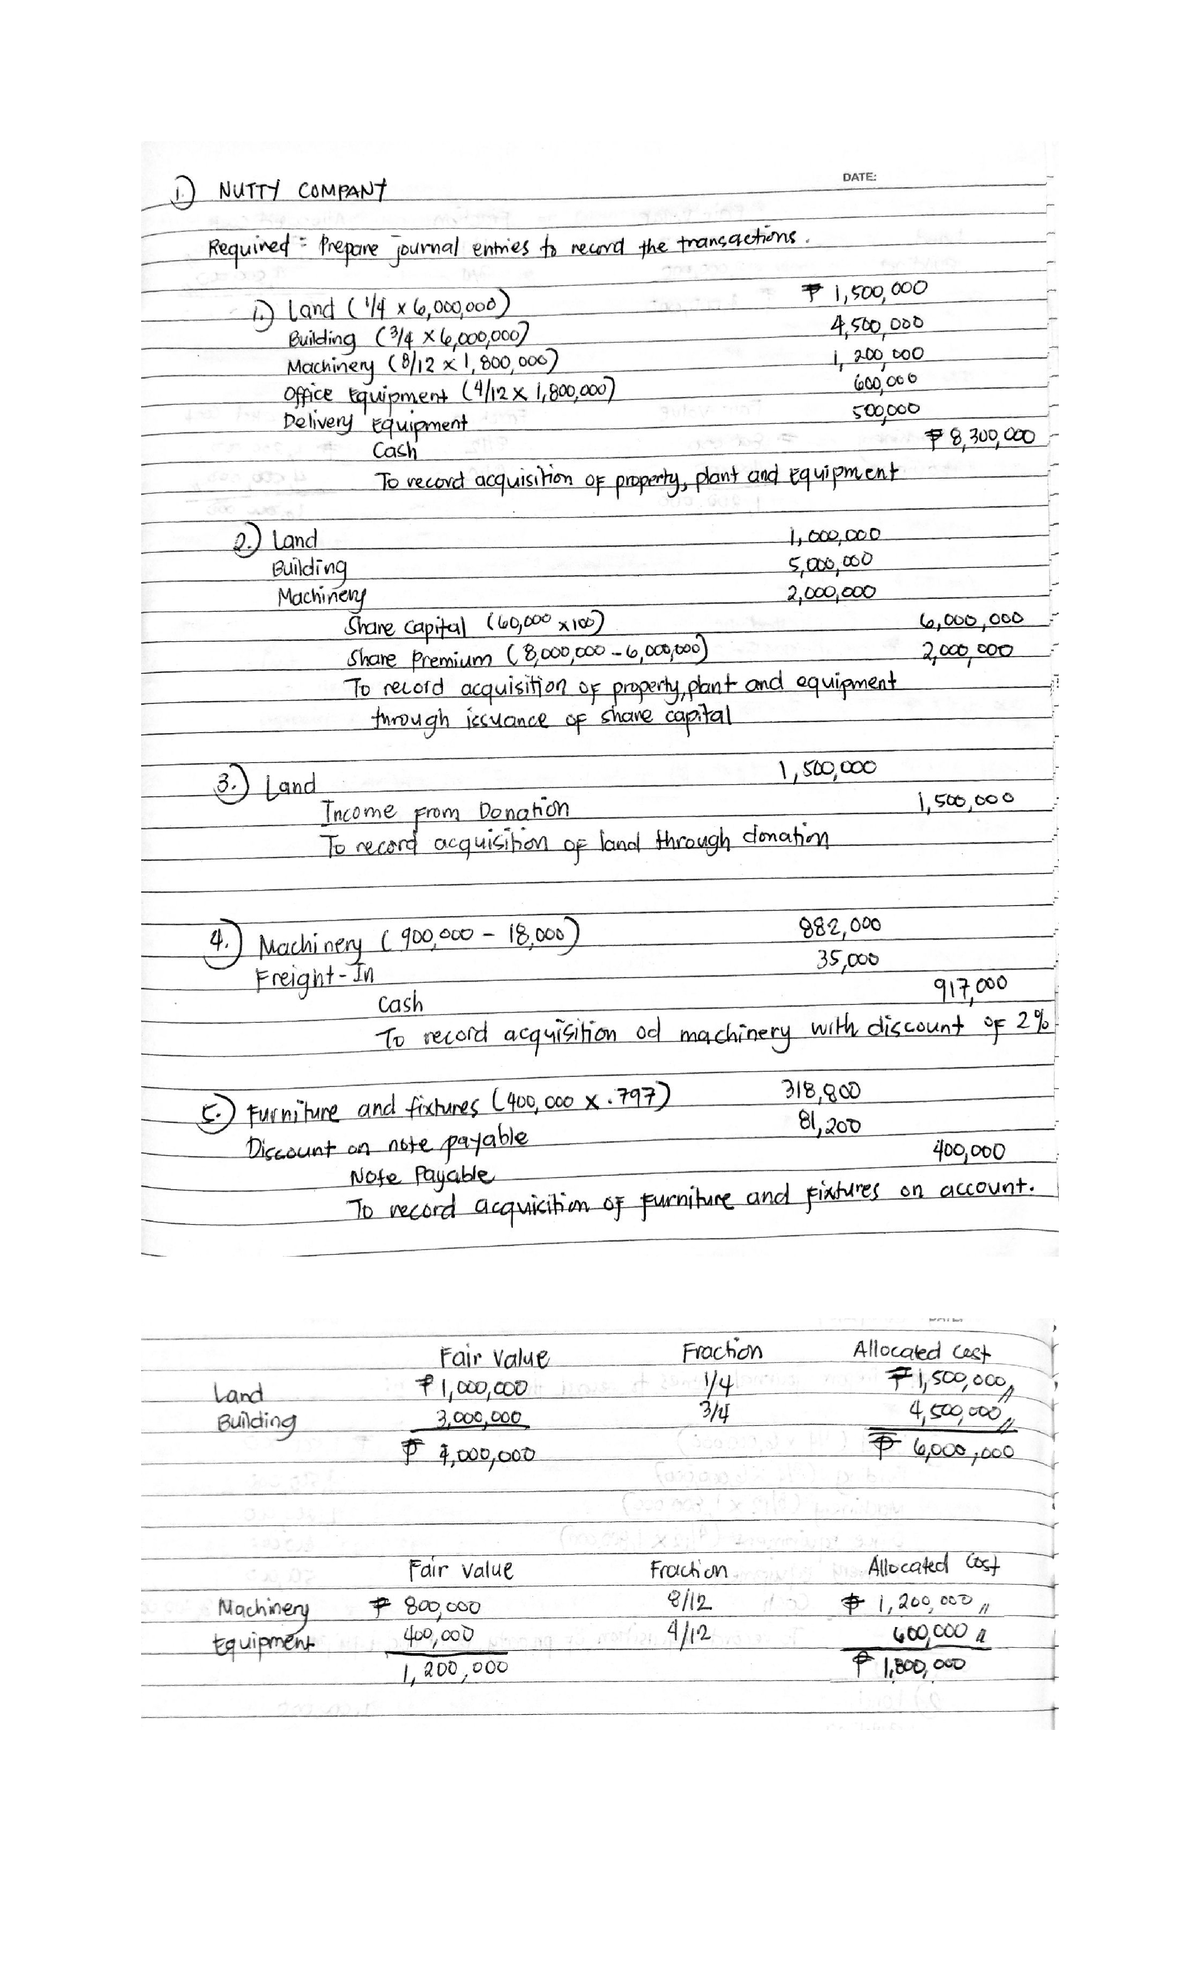 DATE:
1. NUTTY COMPANY
Required: Prepare journal entries to record the transactions.
1.) Land (1/4 x 6,000,000) ₱ 1,500,000
Building (3/4 x 6,000,000) 4,500,000
Machinery (8/12 x 1,800,000) 1,200,000
Office Equipment (4/12 x 1,800,000) 600,000
Delivery Equipment 500,000
Cash ₱ 8,300,000
To record acquisition of property, plant and Equipment
2.) Land 1,000,000
Building 5,000,000
Machinery 2,000,000
Share Capital (60,000 x 100) 6,000,000
Share Premium (8,000,000 - 6,000,000) 2,000,000
To record acquisition of property, plant and equipment
through issuance of share capital
3.) Land 1,500,000
Income From Donation 1,500,000
To record acquisition of land through donation
4.) Machinery (900,000 - 18,000) 882,000
Freight-In 35,000
Cash 917,000
To record acquisition od machinery with discount of 2%
5.) Furniture and fixtures (400,000 x .797) 318,800
Discount on note payable 81,200
Note Payable 400,000
To record acquicition of furniture and fixtures on account.
Fair Value Fraction Allocated Cost
Land ₱ 1,000,000 1/4 ₱ 1,500,000
Building 3,000,000 3/4 4,500,000
₱ 4,000,000 ₱ 6,000,000
Fair Value Fraction Allocated Cost
Machinery ₱ 800,000 8/12 ₱ 1,200,000
Equipment 400,000 4/12 600,000
1,200,000 ₱ 1,800,000